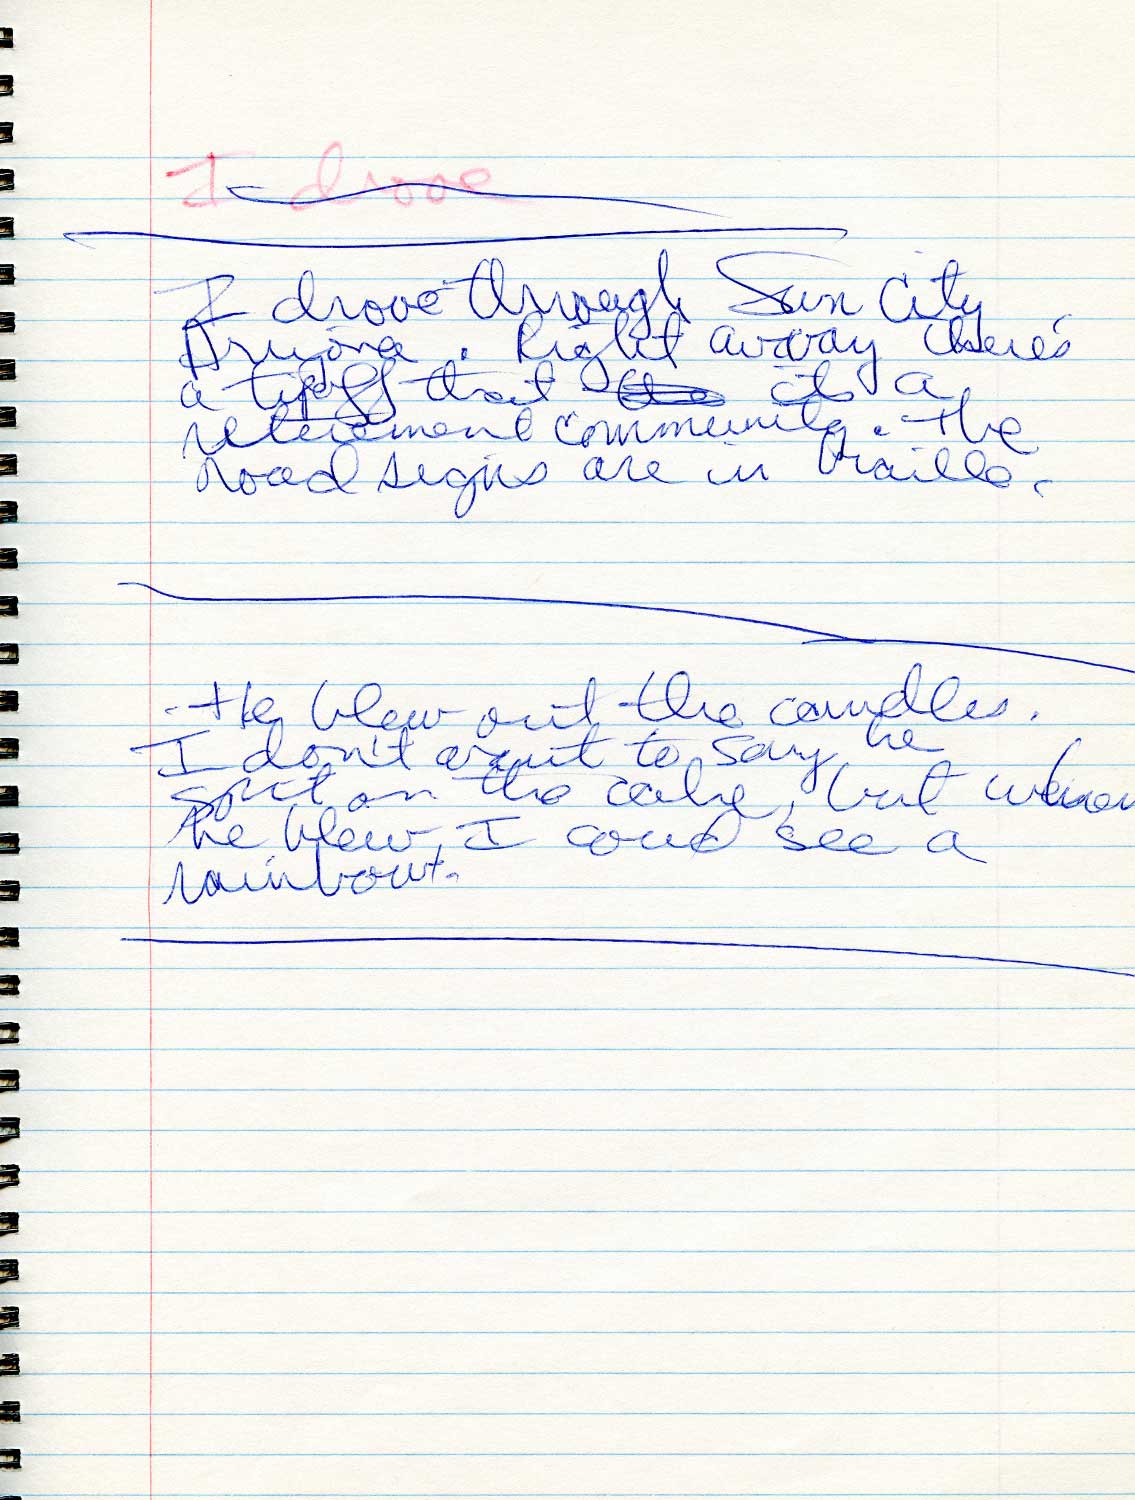 I drove
I drove through Sun City
Arizona. Right away there's
a tipoff that its a
retirement community. The
road signs are in braille.
He blew out the candles.
I don't want to say he
spit on the cake, but when
he blew, I coud see a
rainbow.